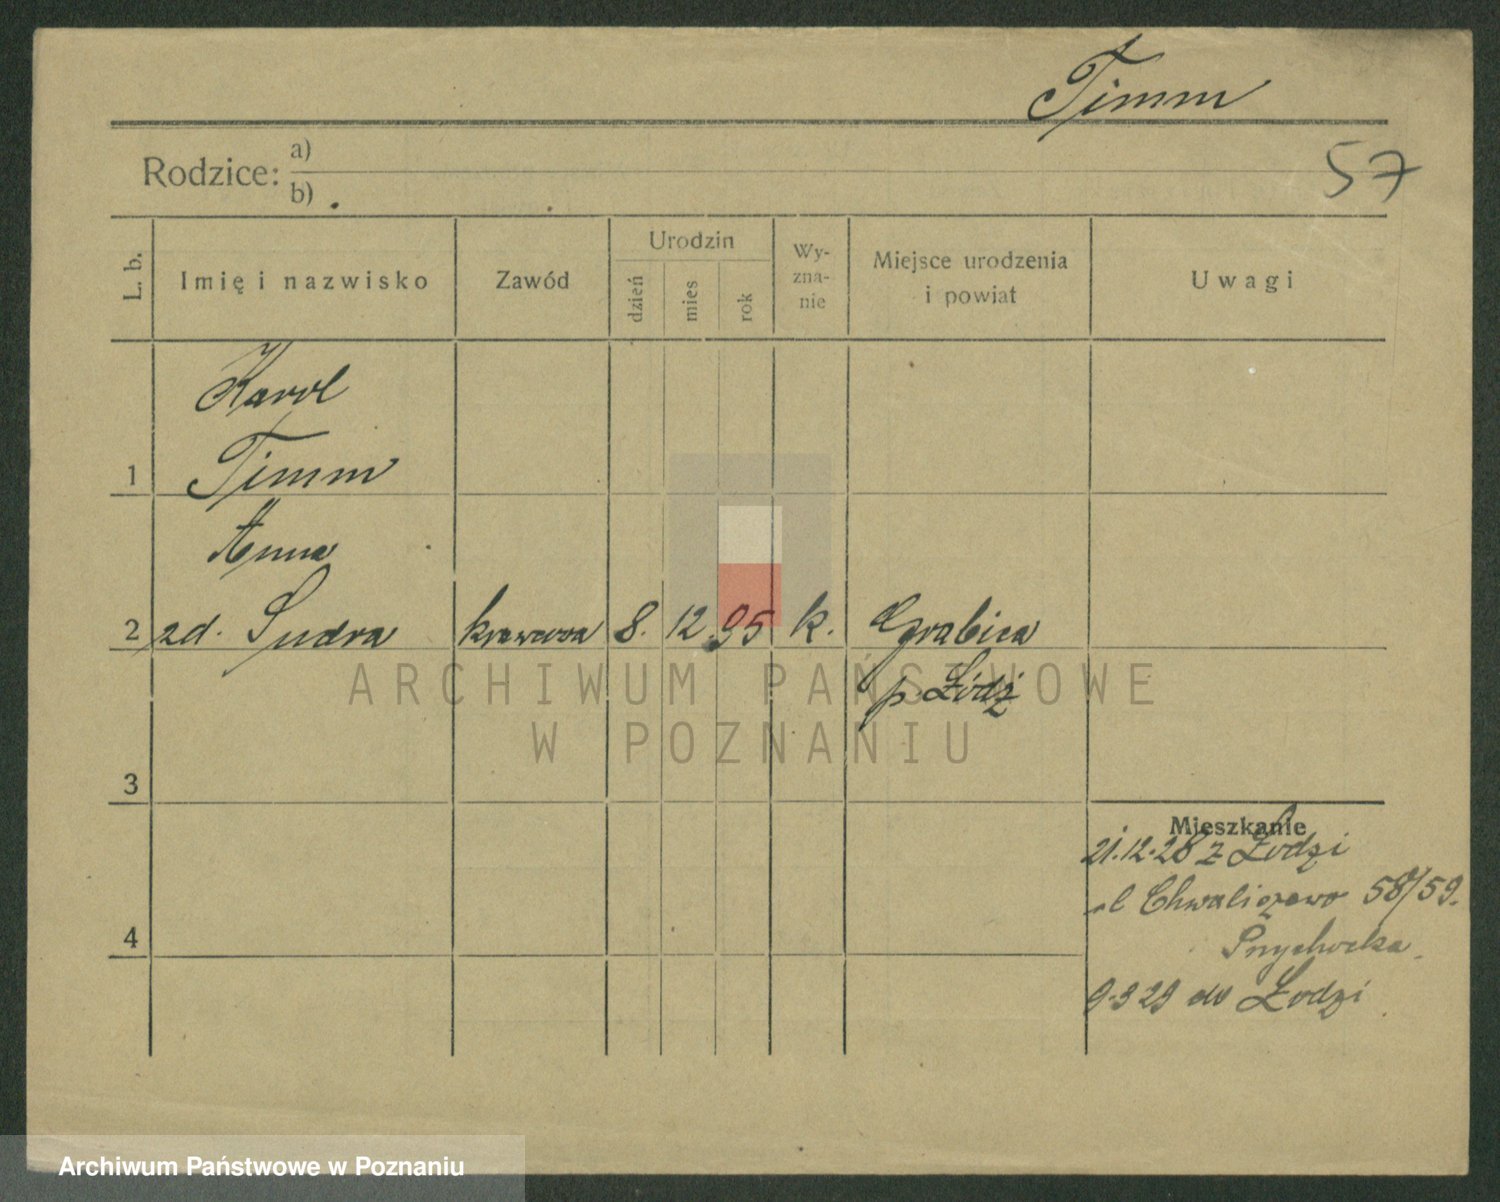 Timm
57
Rodzice: a)
b)
L. b.
Imię i nazwisko
Zawód
Urodzin
dzień
mies
rok
Wy-
zna-
nie
Miejsce urodzenia
i powiat
Uwagi
Karol
1 Timm
Anna
2 zd. Sudra krawcowa 8. 12. 95 k. Grabica
p. Łódź
3
4
Mieszkanie
21.12.28 z Łodzi
ul Chwaliszewo 58/59.
Przychocka
9.3 29 do Łodzi
ARCHIWUM PAŃSTWOWE
W POZNANIU
Archiwum Państwowe w Poznaniu